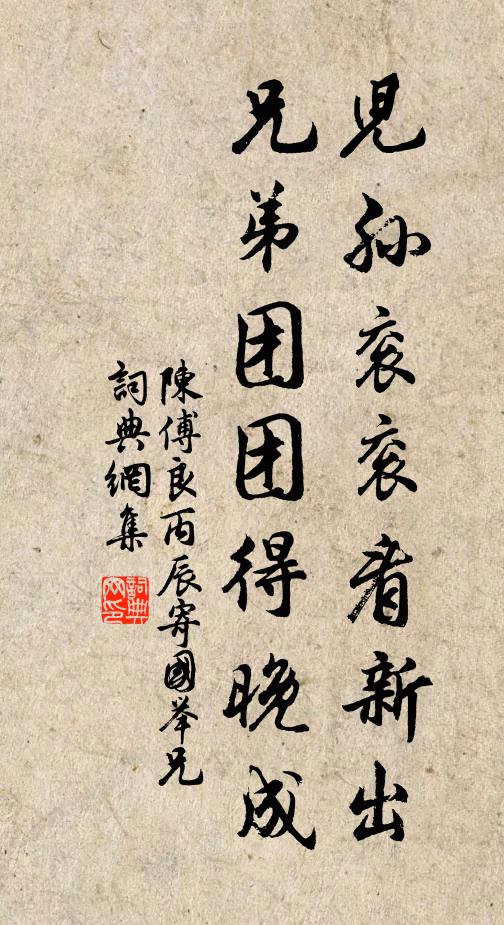 児孙衮衮看新出
兄弟团团得晚成
陳傅良丙辰寄國举兄
詞典網集
詞典网印